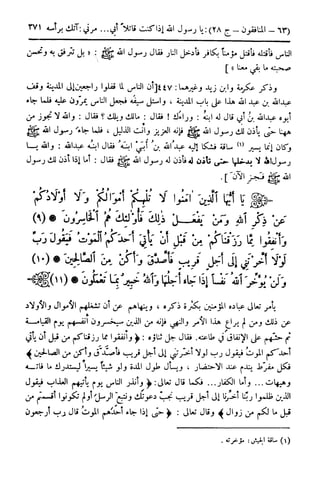 (٦٣) – المنافقون – ج ٢٨): يا رسول الله إذا كنت قاتلاً أبي... مرني: آتك برأسه ٣٧١
الناس فأقتله فأقتل مؤمناً بكافر فأدخل النار فقال رسول الله ﷺ : « بل نترفق به ونحسن
صحبته ما بقي معنا » ]
وذكر عكرمة وابن زيد وغيرهما: ٤٤٧[أن الناس لما قفلوا راجعين إلى المدينة وقف
عبدالله بن عبد الله هذا على باب المدينة ، واستل سيفه فجعل الناس يمرون عليه فلما جاء
أبوه عبدالله بن أبي قال له ابنه : وراءك ! فقال : مالك ويلك ؟ فقال : والله لا تجوز من
ههنا حتى يأذن لك رسول الله ﷺ فإنه العزيز وأنت الذليل ، فلما جاء رسول الله ﷺ
وكان إنما يسير (١) ساقة فشكا إليه عبدالله بن أبي ابنه فقال ابنه عبدالله : والله يا
رسول الله لا يدخلها حتى تأذن له فأذن له رسول الله ﷺ فقال : أما إذا أذن لك رسول
الله ﷺ فجز الآن ] .
يَا أَيُّهَا الَّذِينَ آمَنُوا لَا تُلْهِكُمْ أَمْوَالُكُمْ وَلَا أَوْلَادُكُمْ
عَنْ ذِكْرِ اللَّهِ وَمَنْ يَفْعَلْ ذَلِكَ فَأُولَئِكَ هُمُ الْخَاسِرُونَ ﴿٩﴾
وَأَنْفِقُوا مِمَّا رَزَقْنَاكُمْ مِنْ قَبْلِ أَنْ يَأْتِيَ أَحَدَكُمُ الْمَوْتُ فَيَقُولَ رَبِّ
لَوْلَا أَخَّرْتَنِي إِلَى أَجَلٍ قَرِيبٍ فَأَصَّدَّقَ وَأَكُنْ مِنَ الصَّالِحِينَ ﴿١٠﴾
وَلَنْ يُؤَخِّرَ اللَّهُ نَفْسًا إِذَا جَاءَ أَجَلُهَا وَاللَّهُ خَبِيرٌ بِمَا تَعْمَلُونَ ﴿١١﴾
يأمر تعالى عباده المؤمنين بكثرة ذكره ، وينهاهم عن أن تشغلهم الأموال والأولاد
عن ذلك ومن لم يراع هذا الأمر والنهي فإنه من الذين سيخسرون أنفسهم يوم القيامـــة
ثم حثهم على الإنفاق في طاعته. فقال جل ثناؤه : ﴿ وأنفقوا مما رزقناكم من قبل أن يأتي
أحدكم الموت فيقول رب لولا أخرتني إلى أجل قريب فأصدق وأكن من الصالحين ﴾
فكل مفرط يندم عند الاحتضار ، ويسأل طول المدة ولو شيئاً يسيراً ليستدرك ما فاتــه
وهيهات... وأما الكفار... فكما قال تعالى: ﴿ وأنذر الناس يوم يأتيهم العذاب فيقول
الذين ظلموا ربنا أخرنا إلى أجل قريب نجب دعوتك ونتبع الرسل أولم تكونوا أقسمتم من
قبل ما لكم من زوال ﴾ وقال تعالى : ﴿ حتى إذا جاء أحدهم الموت قال رب ارجعون
(١) ساقة الجيش : مؤخرته .